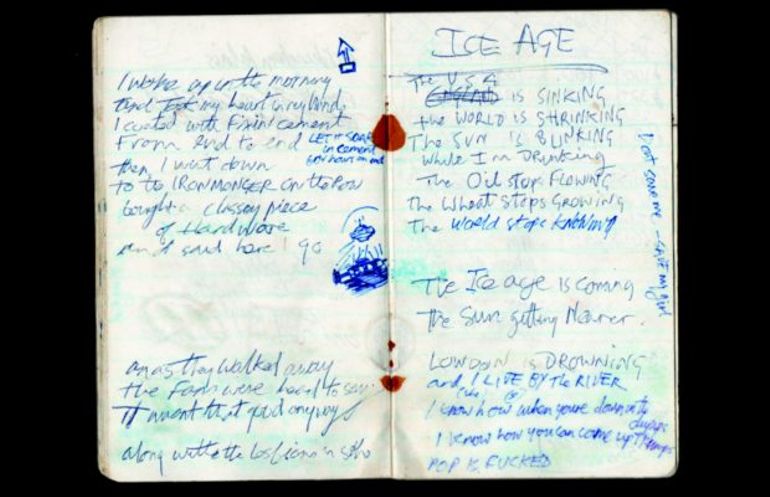 I woke up in the morning
and took my heart in my hand.
I coated with Fixin cement
From end to end
LET IT SOAK
in cement
for hours on end
then I went down
to to IRONMONGER on the Row
bought a classy piece
of Hardware
and I said here I go
as they walked away
the Fans were heard to say
It wasn't that good anyway
along with the
ICE AGE
The USA
ENGLAND IS SINKING
the WORLD IS SHRINKING
The SUN IS BLINKING
While I'm DRINKING
The Oil stops FLOWING
The Wheat stops GROWING
The World stops KNOWING
dont save me - SAVE my girl
The Ice age is coming
The Sun getting Nearer.
LONDON is DROWNING
and I LIVE BY the RIVER
I know how when you're down
I know how you can come up
POP IS FUCKED